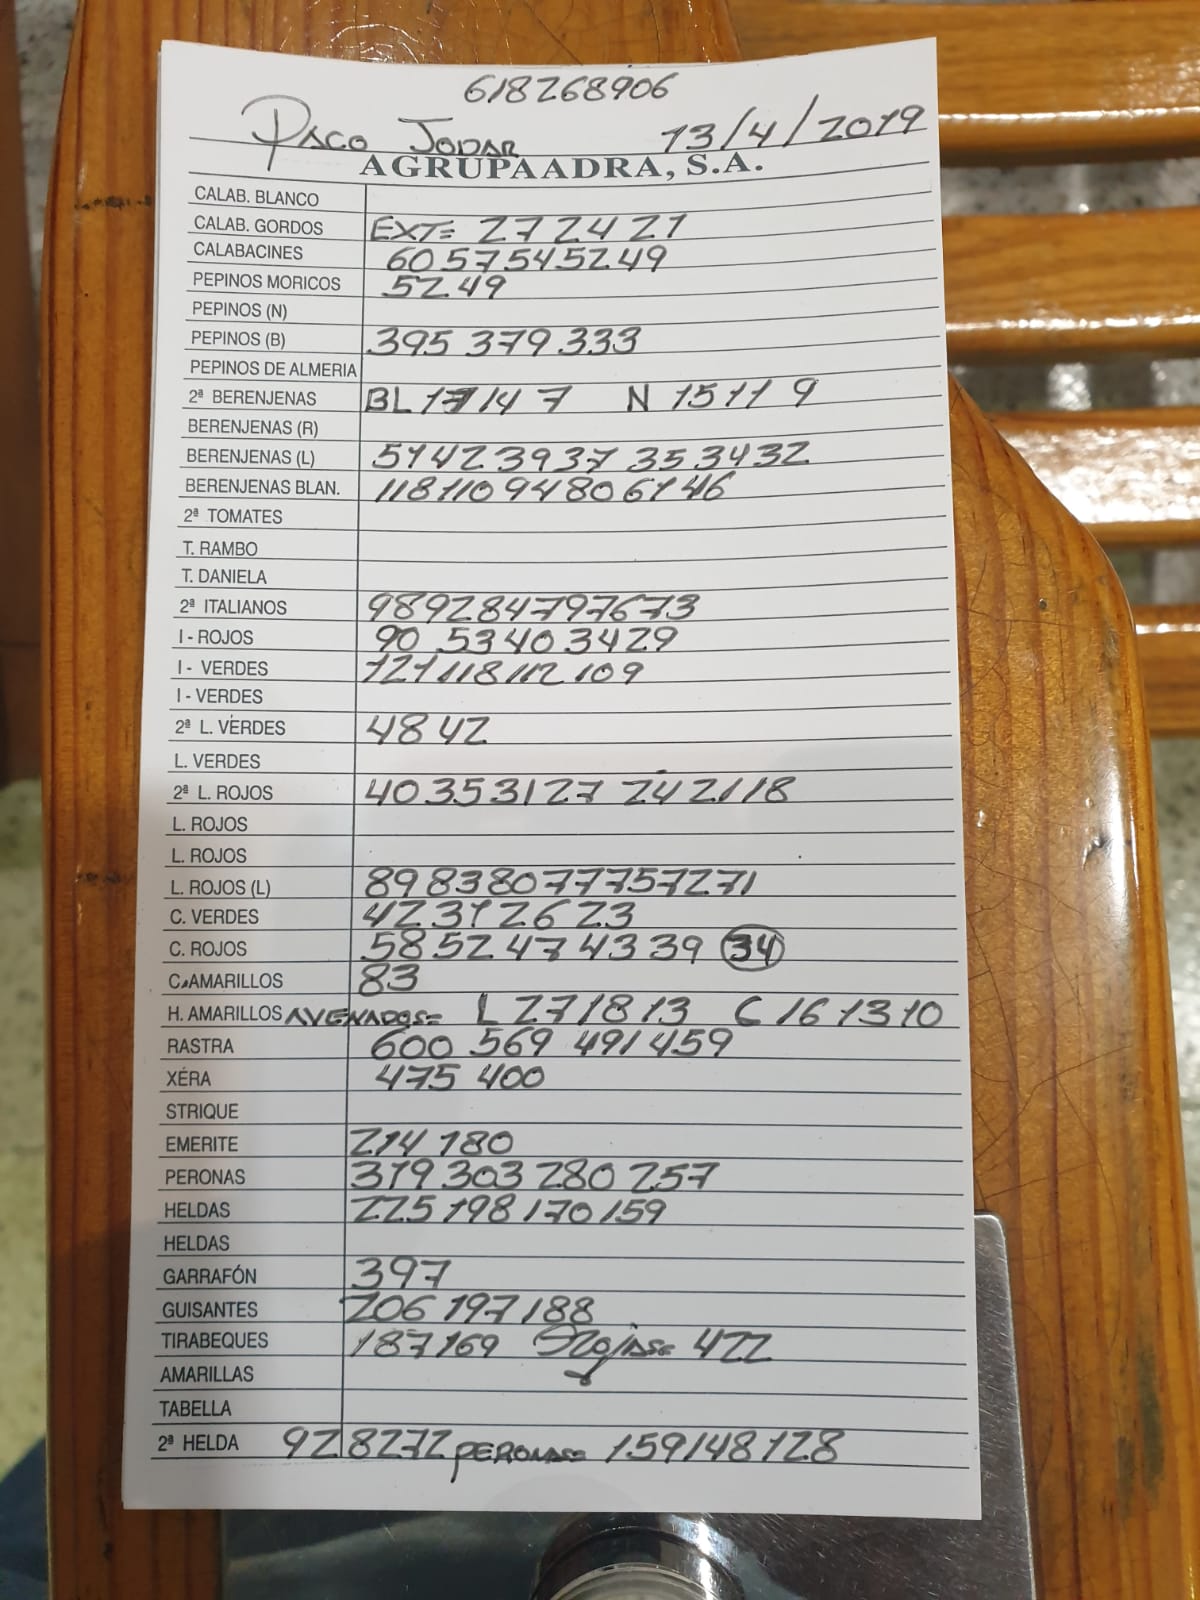 618268906
PACO JODAR 13/4/2019
AGRUPAADRA, S.A.
CALAB. BLANCO
CALAB. GORDOS EXT= 27 24 21
CALABACINES 60 57 54 52 49
PEPINOS MORICOS 52 49
PEPINOS (N)
PEPINOS (B) 395 379 333
PEPINOS DE ALMERIA
2ª BERENJENAS BL 17 14 7 N 15 11 9
BERENJENAS (R)
BERENJENAS (L) 51 42 39 37 35 34 32
BERENJENAS BLAN. 118 110 94 80 61 46
2ª TOMATES
T. RAMBO
T. DANIELA
2ª ITALIANOS 98 92 84 79 76 73
I - ROJOS 90 53 40 34 29
I - VERDES 121 118 112 109
I - VERDES
2ª L. VERDES 48 42
L. VERDES
2ª L. ROJOS 40 35 31 27 24 21 18
L. ROJOS
L. ROJOS
L. ROJOS (L) 89 83 80 77 75 72 71
C. VERDES 42 31 26 23
C. ROJOS 58 52 47 43 39 34
C. AMARILLOS 83
H. AMARILLOS AVENADOS= L 27 18 13 C 16 13 10
RASTRA 600 569 491 459
XÉRA 475 400
STRIQUE
EMERITE 214 180
PERONAS 319 303 280 257
HELDAS 225 198 170 159
HELDAS
GARRAFÓN 397
GUISANTES 206 197 188
TIRABEQUES 187 169 Rojas= 422
AMARILLAS
TABELLA
2ª HELDA 92 82 72 PERONAS= 159 148 128